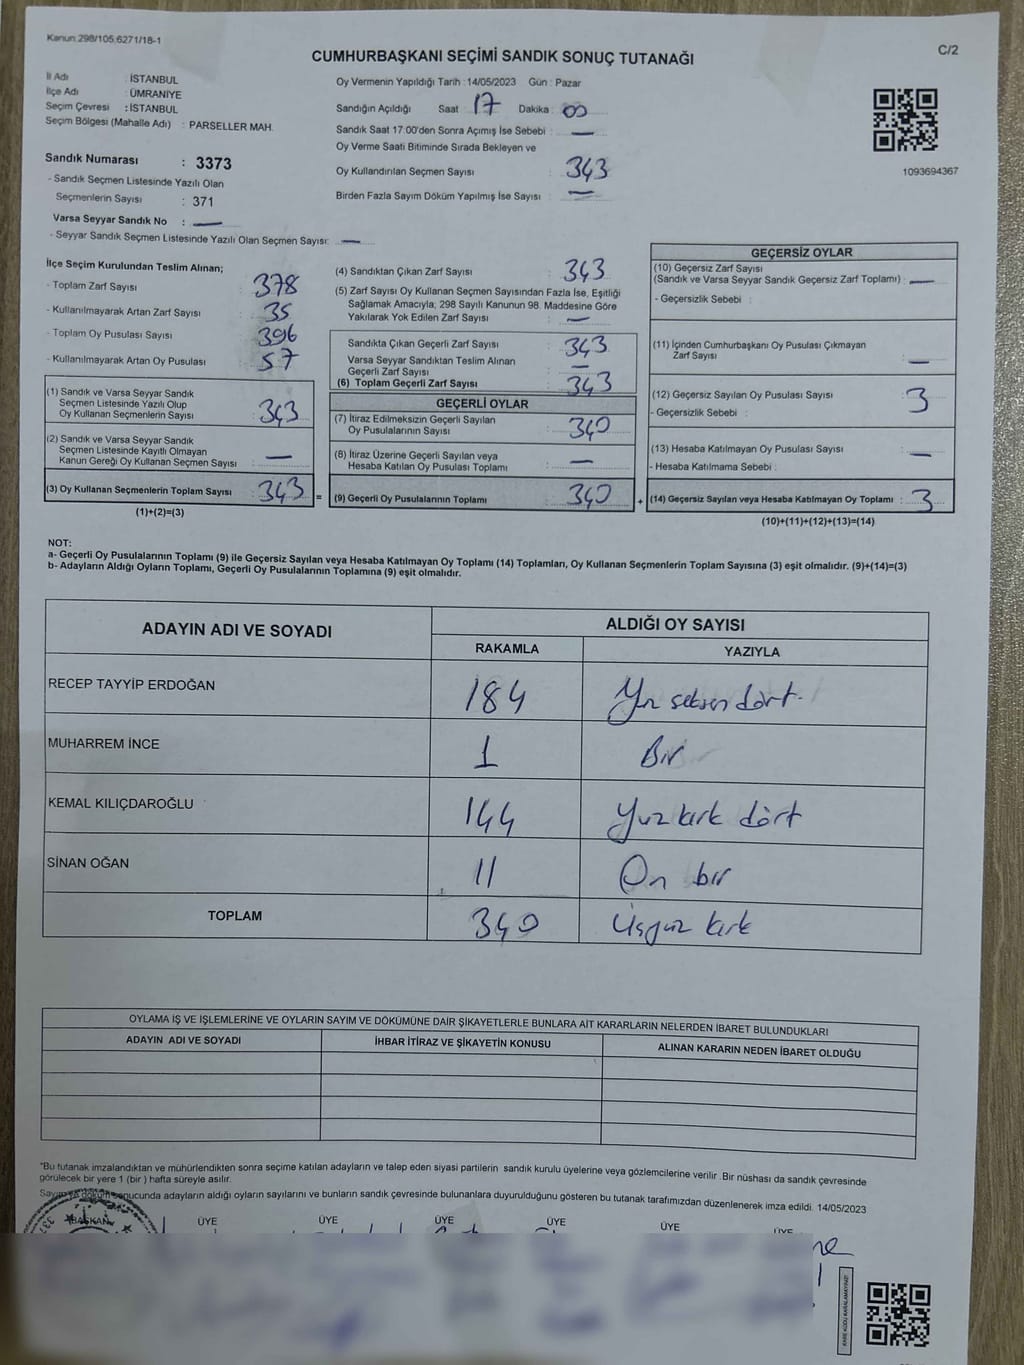 Kanun:298/105,6271/18-1
C/2
CUMHURBAŞKANI SEÇİMİ SANDIK SONUÇ TUTANAĞI
İl Adı : İSTANBUL
İlçe Adı : ÜMRANİYE
Seçim Çevresi : İSTANBUL
Seçim Bölgesi (Mahalle Adı) : PARSELLER MAH.
Sandık Numarası : 3373
- Sandık Seçmen Listesinde Yazılı Olan
Seçmenlerin Sayısı : 371
Varsa Seyyar Sandık No : —
- Seyyar Sandık Seçmen Listesinde Yazılı Olan Seçmen Sayısı: —
Oy Vermenin Yapıldığı Tarih : 14/05/2023 Gün : Pazar
Sandığın Açıldığı Saat : 17 Dakika : 00
Sandık Saat 17:00'den Sonra Açımış İse Sebebi : —
Oy Verme Saati Bitiminde Sırada Bekleyen ve
Oy Kullandırılan Seçmen Sayısı : 343
Birden Fazla Sayım Döküm Yapılmış İse Sayısı : —
1093694367
İlçe Seçim Kurulundan Teslim Alınan;
- Toplam Zarf Sayısı : 378
- Kullanılmayarak Artan Zarf Sayısı : 35
- Toplam Oy Pusulası Sayısı : 396
- Kullanılmayarak Artan Oy Pusulası : 57
(1) Sandık ve Varsa Seyyar Sandık
Seçmen Listesinde Yazılı Olup
Oy Kullanan Seçmenlerin Sayısı : 343
(2) Sandık ve Varsa Seyyar Sandık
Seçmen Listesinde Kayıtlı Olmayan
Kanun Gereği Oy Kullanan Seçmen Sayısı : —
(3) Oy Kullanan Seçmenlerin Toplam Sayısı : 343 =
(1)+(2)=(3)
(4) Sandıktan Çıkan Zarf Sayısı : 343
(5) Zarf Sayısı Oy Kullanan Seçmen Sayısından Fazla İse, Eşitliği
Sağlamak Amacıyla; 298 Sayılı Kanunun 98. Maddesine Göre
Yakılarak Yok Edilen Zarf Sayısı : —
Sandıkta Çıkan Geçerli Zarf Sayısı : 343
Varsa Seyyar Sandıktan Teslim Alınan
Geçerli Zarf Sayısı : —
(6) Toplam Geçerli Zarf Sayısı : 343
GEÇERLİ OYLAR
(7) İtiraz Edilmeksizin Geçerli Sayılan
Oy Pusulalarının Sayısı : 340
(8) İtiraz Üzerine Geçerli Sayılan veya
Hesaba Katılan Oy Pusulası Toplamı : —
(9) Geçerli Oy Pusulalarının Toplamı : 340 +
GEÇERSİZ OYLAR
(10) Geçersiz Zarf Sayısı
(Sandık ve Varsa Seyyar Sandık Geçersiz Zarf Toplamı) : —
- Geçersizlik Sebebi :
(11) İçinden Cumhurbaşkanı Oy Pusulası Çıkmayan
Zarf Sayısı : —
(12) Geçersiz Sayılan Oy Pusulası Sayısı : 3
- Geçersizlik Sebebi :
(13) Hesaba Katılmayan Oy Pusulası Sayısı : —
- Hesaba Katılmama Sebebi :
(14) Geçersiz Sayılan veya Hesaba Katılmayan Oy Toplamı : 3
(10)+(11)+(12)+(13)=(14)
NOT:
a- Geçerli Oy Pusulalarının Toplamı (9) ile Geçersiz Sayılan veya Hesaba Katılmayan Oy Toplamı (14) Toplamları, Oy Kullanan Seçmenlerin Toplam Sayısına (3) eşit olmalıdır. (9)+(14)=(3)
b- Adayların Aldığı Oyların Toplamı, Geçerli Oy Pusulalarının Toplamına (9) eşit olmalıdır.
ADAYIN ADI VE SOYADI ALDIĞI OY SAYISI
RAKAMLA YAZIYLA
RECEP TAYYİP ERDOĞAN 184 Yüz seksen dört
MUHARREM İNCE 1 Bir
KEMAL KILIÇDAROĞLU 144 Yuz kırk dört
SİNAN OĞAN 11 On bir
TOPLAM 340 Üçyüz kırk
OYLAMA İŞ VE İŞLEMLERİNE VE OYLARIN SAYIM VE DÖKÜMÜNE DAİR ŞİKAYETLERLE BUNLARA AİT KARARLARIN NELERDEN İBARET BULUNDUKLARI
ADAYIN ADI VE SOYADI İHBAR İTİRAZ VE ŞİKAYETİN KONUSU ALINAN KARARIN NEDEN İBARET OLDUĞU
"Bu tutanak imzalandıktan ve mühürlendikten sonra seçime katılan adayların ve talep eden siyasi partilerin sandık kurulu üyelerine veya gözlemcilerine verilir. Bir nüshası da sandık çevresinde
görülecek bir yere 1 (bir) hafta süreyle asılır.
Sayım ve döküm sonucunda adayların aldığı oyların sayılarını ve bunların sandık çevresinde bulunanlara duyurulduğunu gösteren bu tutanak tarafımızdan düzenlenerek imza edildi. 14/05/2023
BAŞKAN ÜYE ÜYE ÜYE ÜYE ÜYE ÜYE
KARE KODU KARALAMAYINIZ!